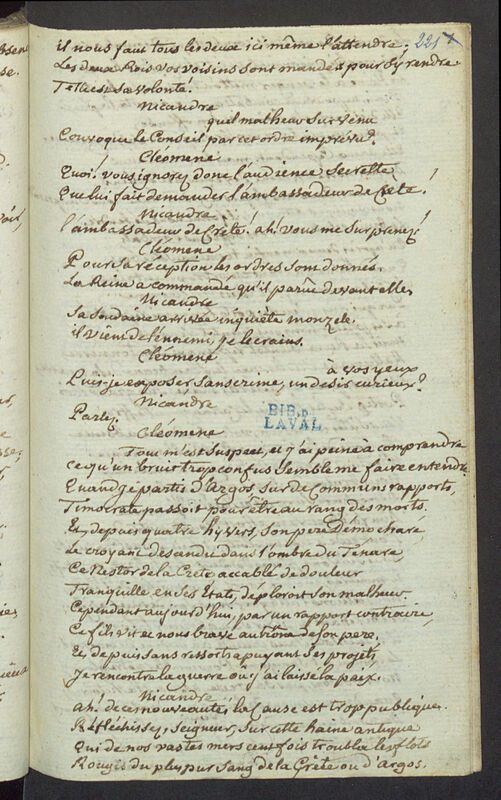 221
il nous faut tous les deux ici même l'attendre;
Les deux Rois vos voisins sont mandés pour s'y rendre
Telle est sa volonté.
Nicandre
quel malheur survenu
Convoque le Conseil par cet ordre imprévu?
Cléomene
Quoi! vous ignorez donc l'audience secrette
Que lui fait demander l'ambassadeur de Crete!
Nicandre
l'ambassadeur de Crète! ah! vous me surprenez!
Cléomene
Pour sa réception les ordres sont donnés.
La Reine a commandé qu'il parût devant elle,
Nicandre
Sa soudaine arrivée inquiète mon zele.
il vient de l'ennemi, je le crains.
Cléomene
à vos yeux
Puis-je exposer sans crime, un desir curieux?
Nicandre
Parlez
BIB. D
LAVAL
Cléomene
Tout m'est suspect, et j'ai peine à comprendre
Ce qu'un bruit trop confus semble me faire entendre
Quand je partis d'Argos, sur de communs rapports,
Timocrate passoit pour être au rang des morts.
Et, depuis quatre hyvers, son pere Démocharé
Le croyant descendu dans l'ombre du Ténare,
Ce Nestor de la Crete accablé de douleur
Tranquille en ses Etats, déploroit son malheur.
Cependant aujourd'hui, par un rapport contraire,
Ce fils vit et nous brave au trône de son pere,
Et, depuis sans ressorts appuyant ses projets,
Je rencontre la guerre où j'ai laissé la paix.
Nicandre
ah! de ces nouveautés la Cause est trop publique.
Réfléchissez, Seigneur, sur cette haine antique
Qui de nos vastes mers cent fois troubla les flots
Rougis du plus pur sang de la Crète ou d'Argos.